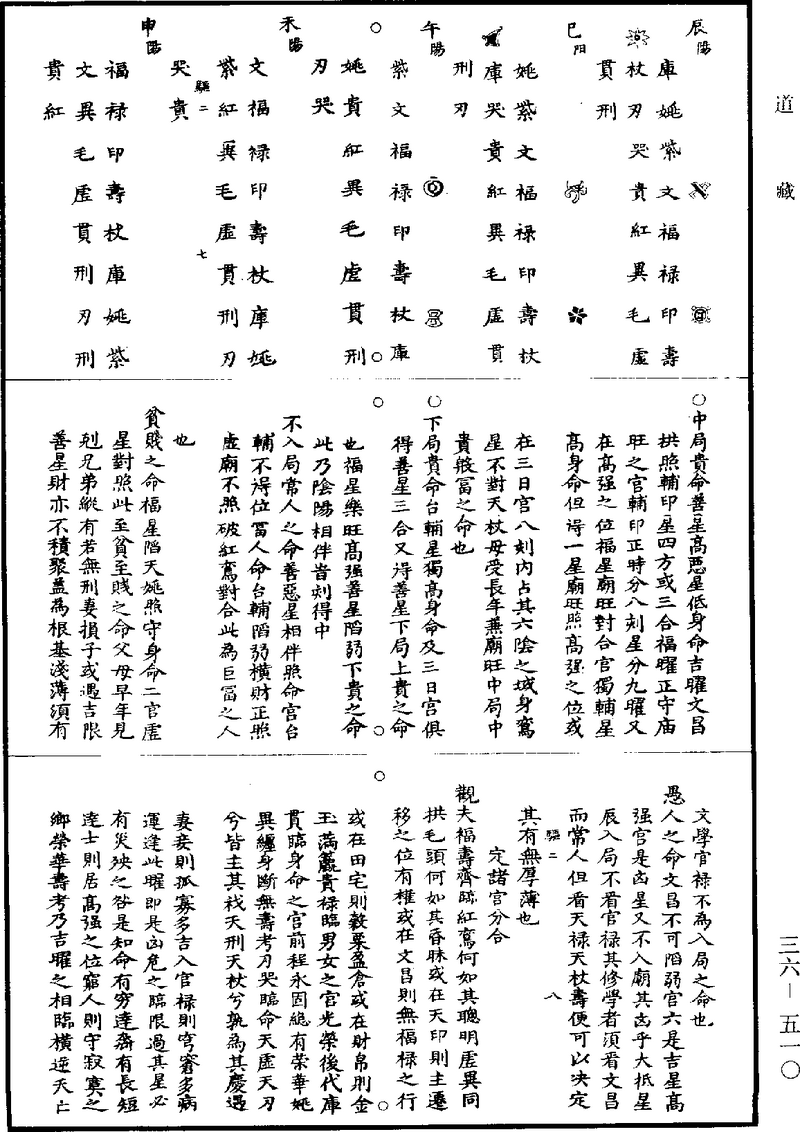 道藏
辰陽
庫姚紫文福祿印壽
杖刃哭貴紅異毛虛
貫刑
巳陽
姚紫文福祿印壽杖
庫哭貴紅異毛虛貫
刑刃
午陽
紫文福祿印壽杖庫
姚貴紅異毛虛貫刑
刃哭
未陽
文福祿印壽杖庫姚
紫紅異毛虛貫刑刃
哭貴
騩二 七
申陽
福祿印壽杖庫姚紫
文異毛虛貫刑刃刑
貴紅
○中局貴命善星高惡星低身命吉曜文昌
拱照輔印星四方或三合福曜正守庙
旺之官輔印正時分八刻星分九曜又
在高强之位福星廟旺對合官獨輔星
高身命但得一星廟旺照高强之位或
在三日宮八刻內占其六陰之域身鸞
星不對天杖母受長年兼廟旺中局中
貴般冨之命也
○下局貴命台輔星獨高身命及三日宮俱
得善星三合又得善星下局上貴之命
也福星樂旺高强善星陷弱下貴之命
此乃陰陽相伴皆剋得中
不入局常人之命善惡星相伴照命宮台
輔不得位冨人命台輔陷弱橫財正照
虛廟不照破紅鸞對合此為巨冨之人
也
貧賤之命福星陷天姚照守身命二官虛
星對照此至貧至賤之命父母早年見
剋兄弟縱有若無刑妻損子或遇吉限
善星財亦不積聚蓋為根基淺薄須有
文學官祿不為入局之命也
愚人之命文昌不可陷弱官六是吉星高
强官是凶星又不入廟其凶乎大抵星
辰入局不看官祿其修學者須看文昌
而常人但看天祿天杖壽便可以決定
騩二 八
其有無厚薄也
定諸宮分合
觀夫福壽齊臨紅鸞何如其聰明虛異同
拱毛頭何如其昏昧或在天印則主遷
移之位有權或在文昌則無福祿之行
或在田宅則穀粟盈倉或在財帛則金
玉滿籯貴祿臨男女之宮光榮後代庫
貫臨身命之宮前程永固縱有榮華姚
異纏身斷無壽考刃哭臨命天虛天刃
兮皆主其栈天刑天杖兮孰為其慶遇
妻妾則孤寡多吉入官祿則穹窘多病
運逢此曜即是凶危之臨限過其星必
有災殃之咎是知命有窮達齋有長短
達士則居高强之位窮人則守寂寞之
鄉榮華壽考乃吉曜之相臨橫逆天亡
三六－五一〇